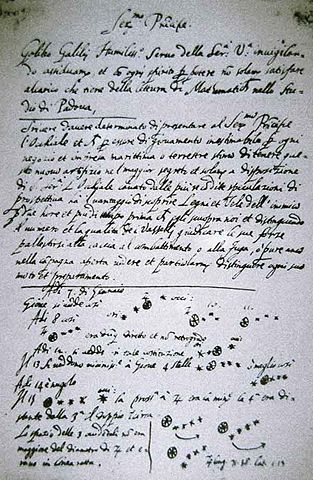 Ser.mo Principe.
Galileo Galilei Humiliss.o Servo della Ser.a V.a invigilan-
do assiduam.te, et cō ogni spirito p potere nō solam.te satisfare
al carico che tiene della lettura di Mathematica nello Stu-
dio di Padova,
Scrive d'avere determinato di presentare al Ser.mo Principe
l'Occhiale et p essere di giovamento inestimabile p ogni
negozio et impresa marittima o terrestre stima di tenere que-
sto nuovo artifizio nel maggior segreto et solam.te a disposizione
di S. Ser.tà L'Occhiale cavato dalle più recōdite speculazioni di
prospettiva ha il vantaggio di scoprire Legni et Vele dell'inimico
p due hore et più di tempo prima ch'egli scuopra noi et distinguendo
il numero et la qualità de i Vasselli giudicare le sue forze
pallestirsi alla caccia al combattimento o alla fuga, o pure anco
nella capagna aperta vedere et particolarm.te distinguere ogni suo
moto et preparamento.
Adì 7 di Gennaio
Giove si vedde così
Adì 8 così
era dūq diretto et nō retrogrado
Adì 12 si vedde in tale costituzione
Il 13 si veddono 4 stelle
Adì 14 è nugolo
Il 15
la 4ª era di-
stante dalla 3ª il doppio
Lo spazio delle 3 occidētali nō era
maggiore del diametro di ♃ et e-
rano in linea retta.